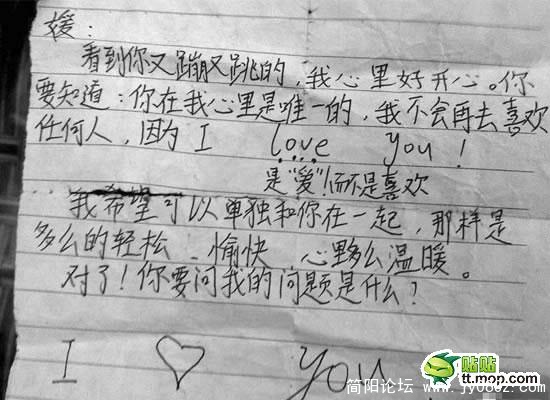 媛：
看到你又蹦又跳的，我心里好开心。你
要知道：你在我心里是唯一的，我不会再去喜欢
任何人，因为 I love you！
是“爱”！而不是喜欢
我希望可以单独和你在一起，那样是
多么的轻松、愉快 心多么温暖。
对了！你要问我的问题是什么？
I ♡ you
贴贴
tt.mop.com
简阳论坛 www.jy0832.com